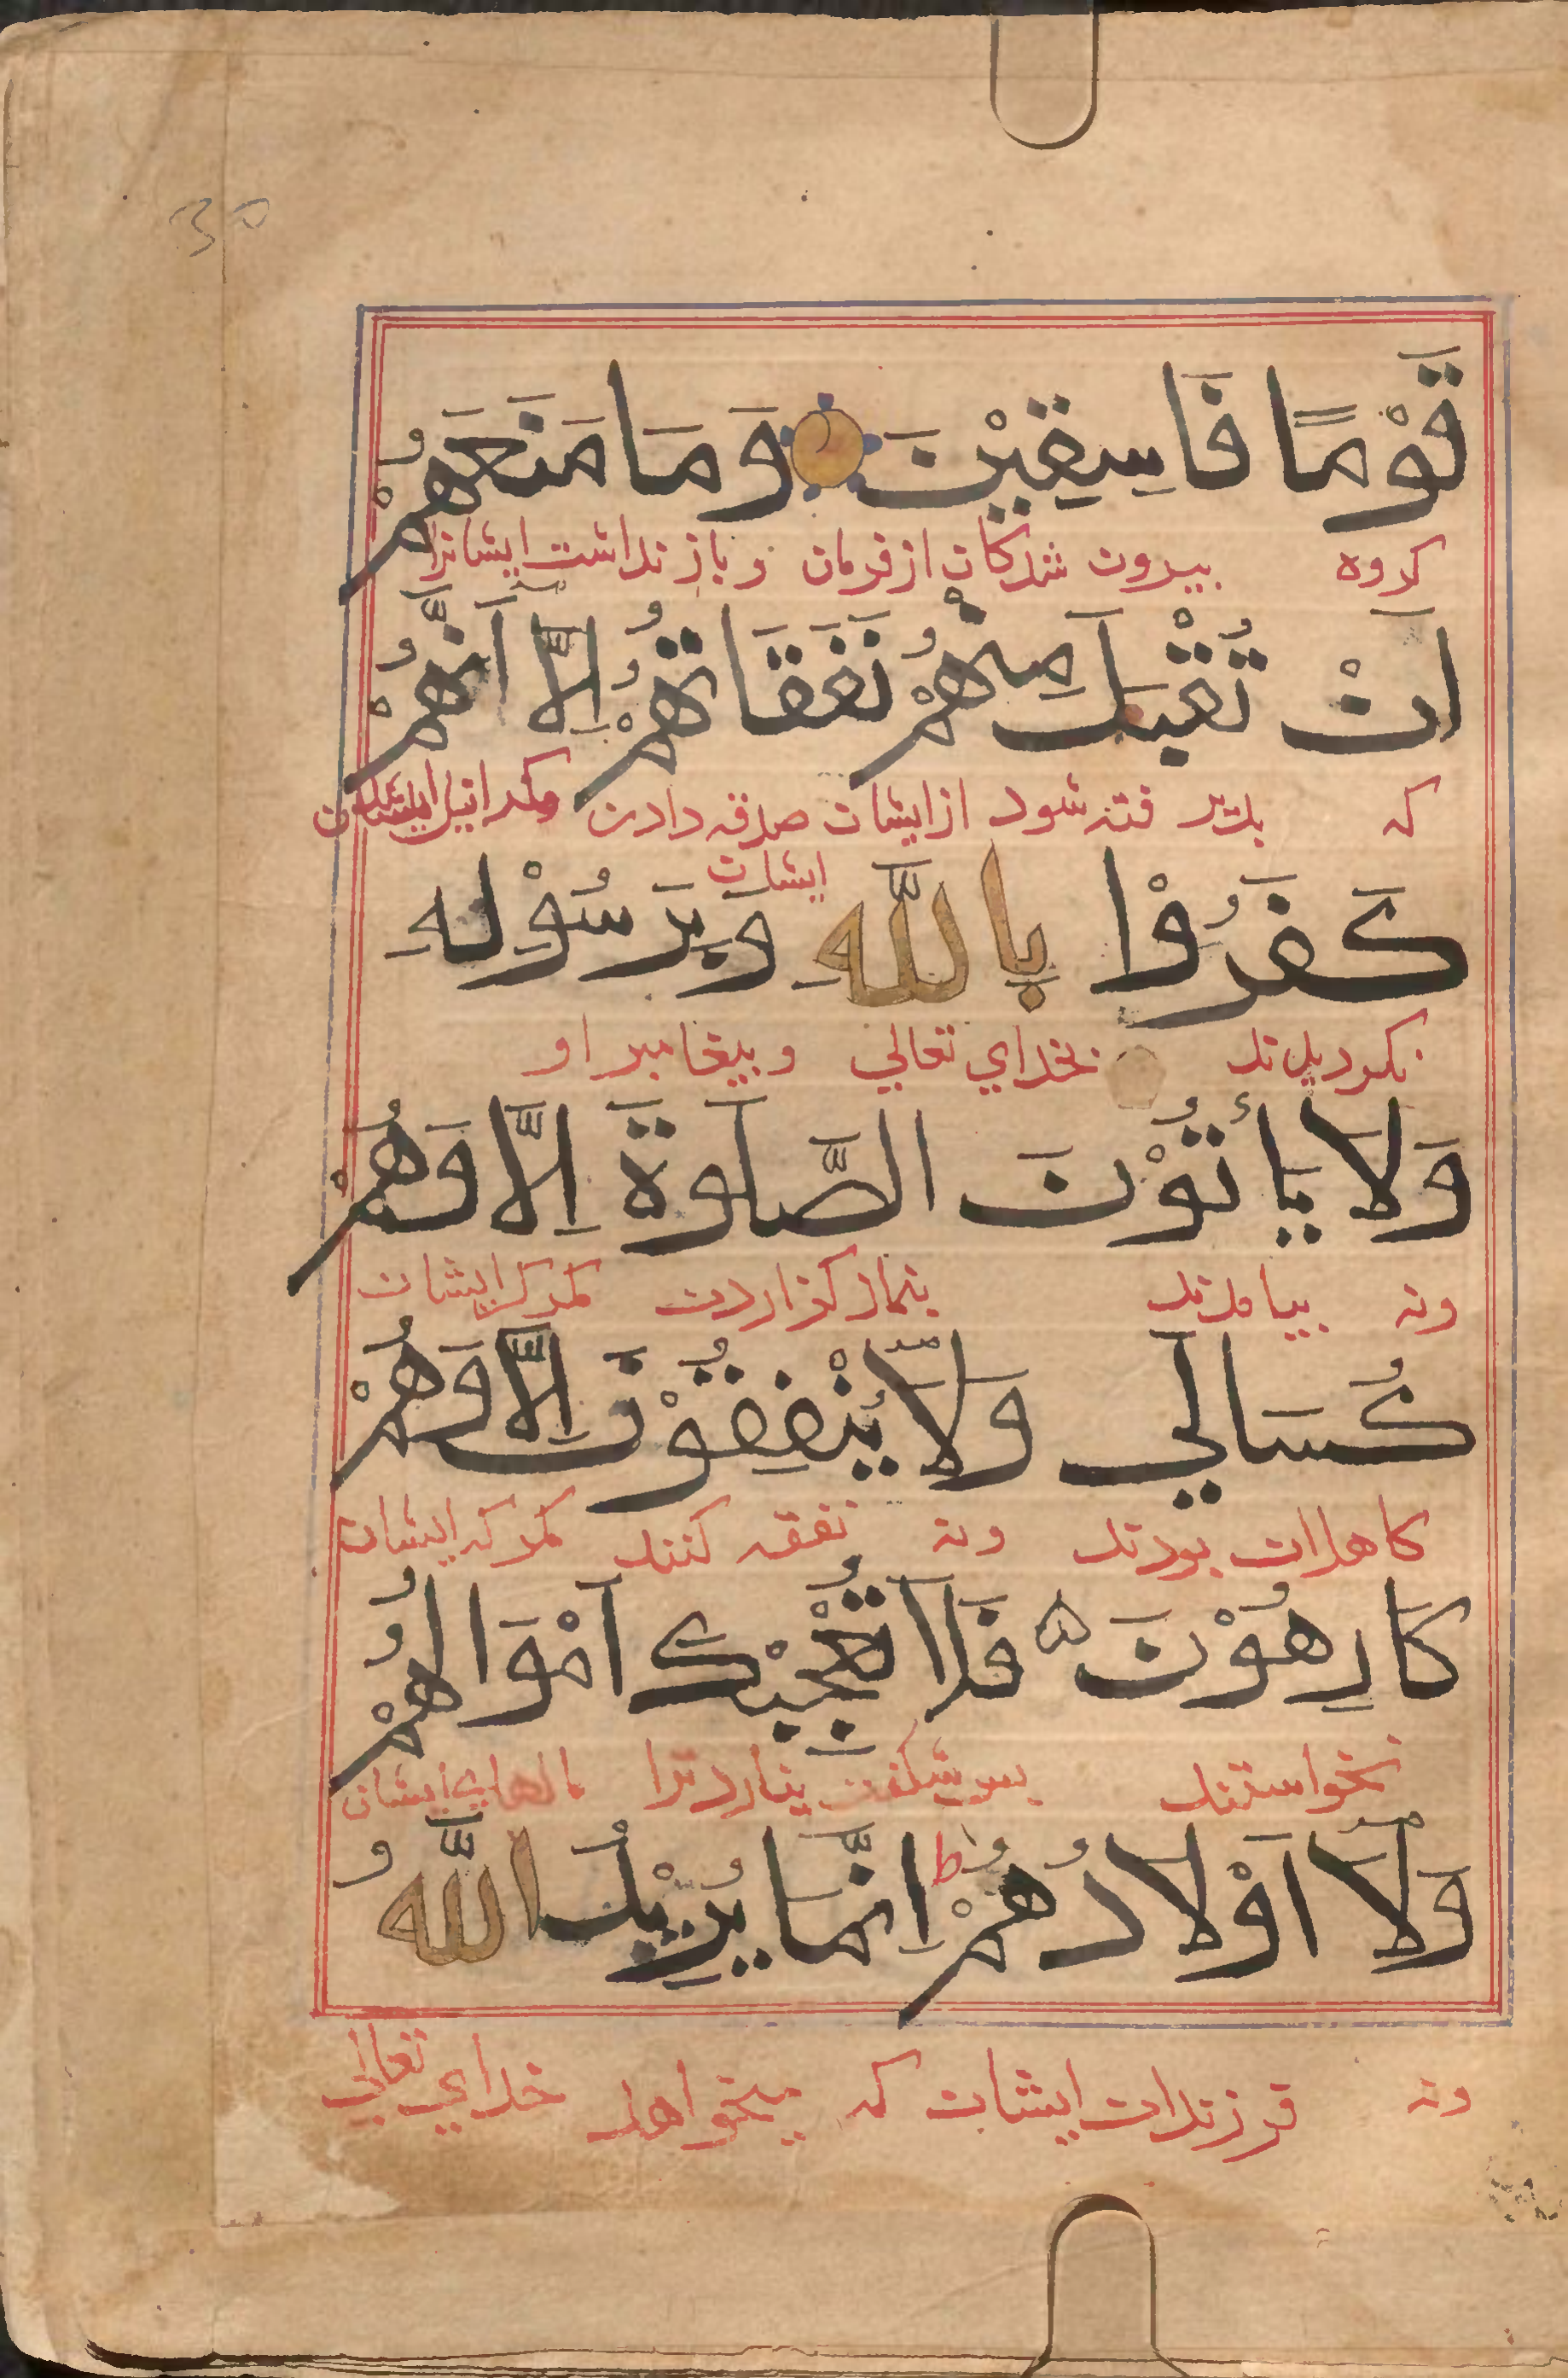 30
قَوْمًا فَاسِقِيْنَ وَمَا مَنَعَهُمْ
كروه بيرون شدكان از فرمان و باز نداشت ايشانرا
اَنْ تُقْبَلَ مِنْهُمْ نَفَقَاتُهُمْ اِلَّآ اَنَّهُمْ
كه شود از ايشان صدقه دادن
ايشان
كَفَرُوْا بِاللّٰهِ وَبِرَسُوْلِهِ
بخداي تعالي و بيغامبر او
وَلَا يَأْتُوْنَ الصَّلَوةَ اِلَّا وَهُمْ
ونه بيامدند بنماز كزاردن مكر كه ايشان
كُسَالَي وَلَا يُنْفِقُوْنَ اِلَّا وَهُمْ
كاهلان بودند ونه نفقه كنند مكر كه ايشان
كَارِهُوْنَ ه فَلَا تُعْجِبْكَ اَمْوَالُهُمْ
نخواستند بس شكفت نيارد ترا مالهاي ايشان
وَلَآ اَوْلَادُهُمْ ط اِنَّمَا يُرِيْدُ اللّٰهُ
ونه فرزندان ايشان كه ميخواهد خداي تعالي